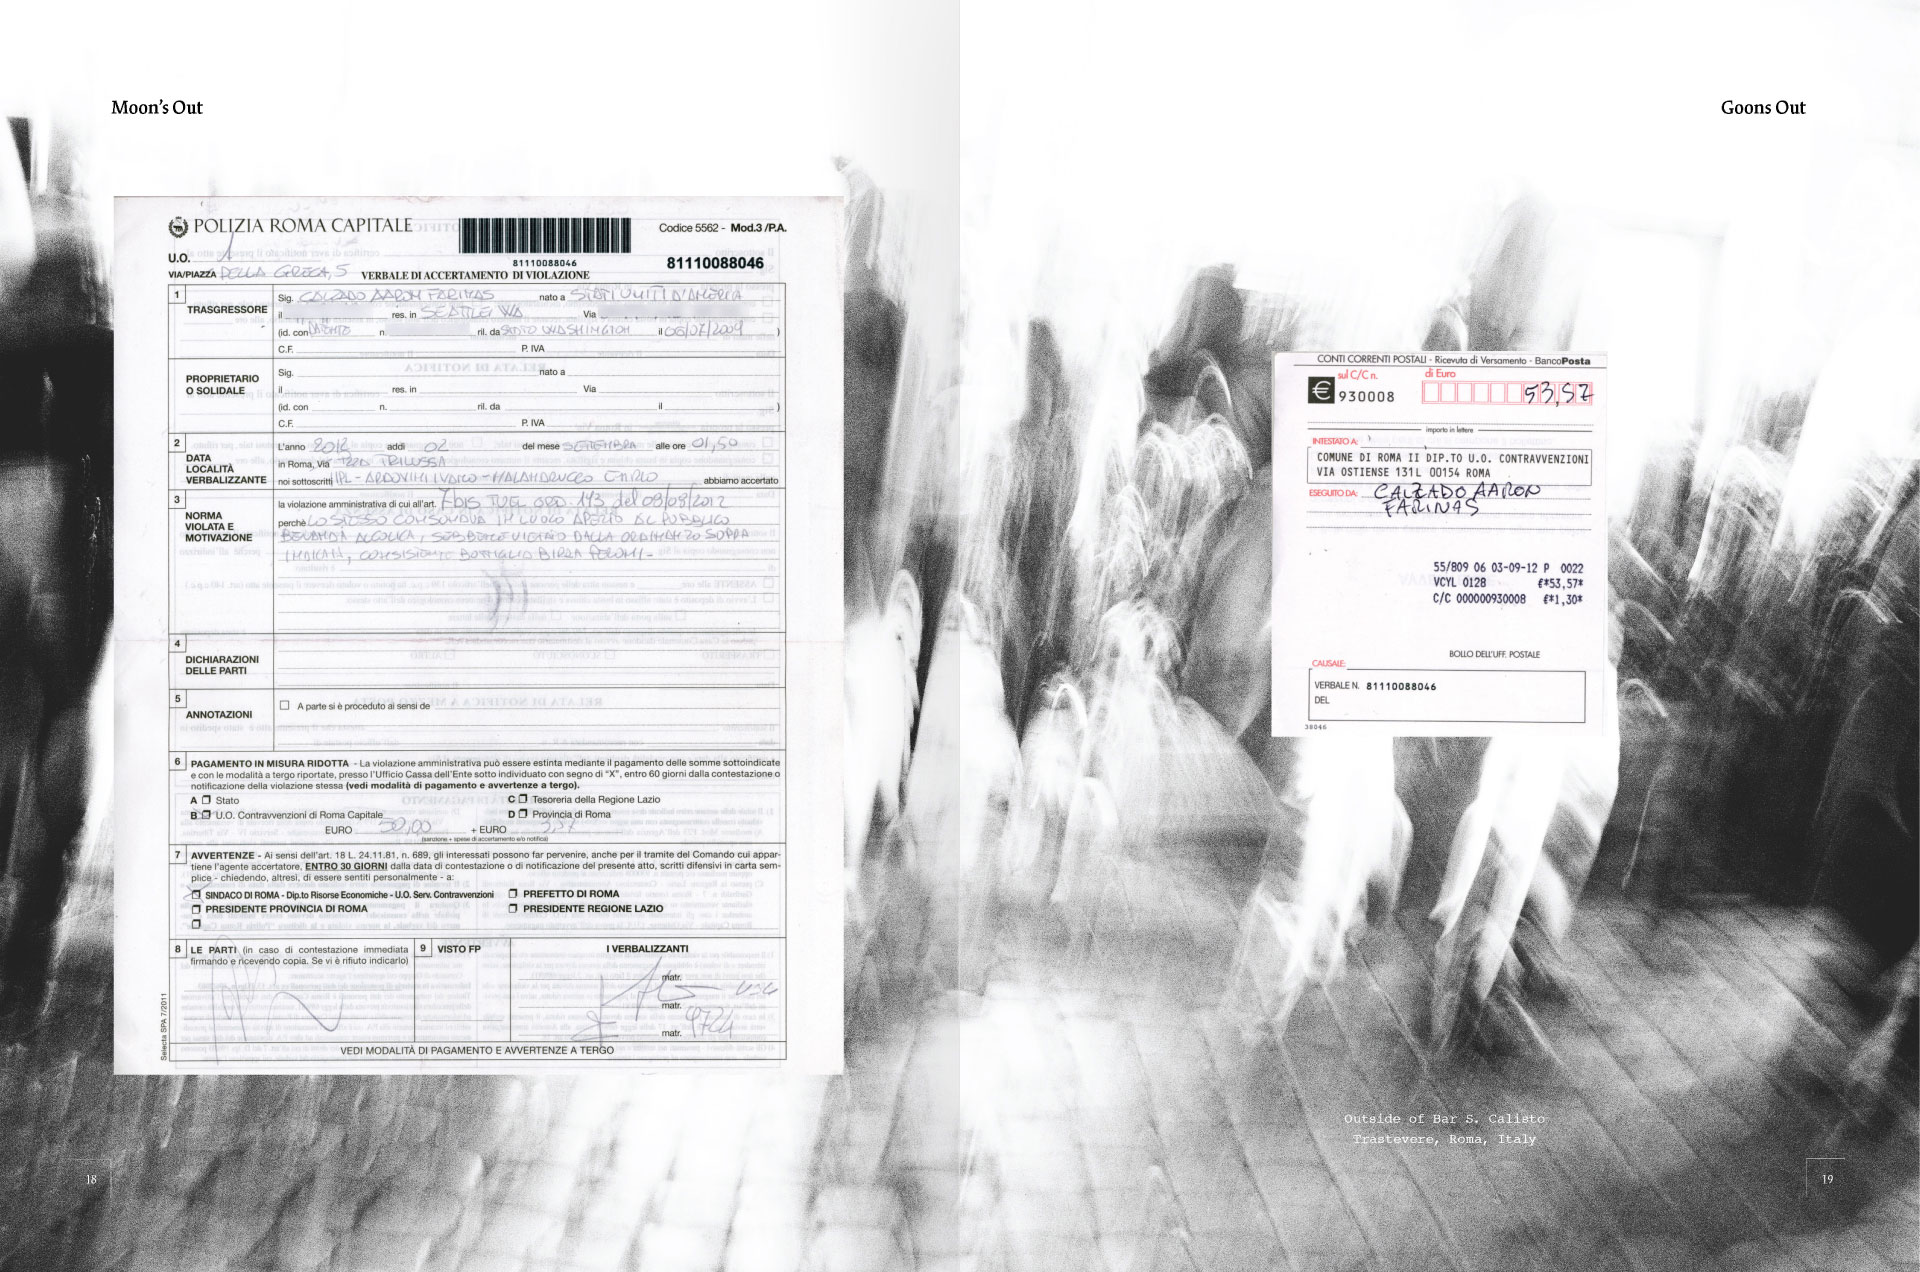 Moon's Out
Goons Out
POLIZIA ROMA CAPITALE
Codice 5562 - Mod.3 /P.A.
U.O.
81110088046
81110088046
VIA/PIAZZA DELLA GRECA, 5
VERBALE DI ACCERTAMENTO DI VIOLAZIONE
1 TRASGRESSORE
Sig. CALZADO AARON FARINAS nato a STATI UNITI D'AMERICA
il res. in SEATTLE WA Via
(id. con n. ril. da STATO WASHINGTON il 06/07/2009 )
C.F. P. IVA
PROPRIETARIO O SOLIDALE
Sig. nato a
il res. in Via
(id. con n. ril. da il )
C.F. P. IVA
2 DATA LOCALITÀ VERBALIZZANTE
L'anno 2012 addì 02 del mese SETTEMBRE alle ore 01,50
in Roma, Via P.ZZA TRILUSSA
noi sottoscritti abbiamo accertato
3 NORMA VIOLATA E MOTIVAZIONE
la violazione amministrativa di cui all'art. 7 bis TUEL ORD. 173 del 08/08/2012
perchè LO STESSO CONSUMAVA IN LUOGO APERTO AL PUBBLICO
BEVANDA ALCOLICA, SEBBENE VIETATO DALLA ORDINANZA SOPRA
INDICATA, CONSISTENTE BOTTIGLIA BIRRA PERONI-
4 DICHIARAZIONI DELLE PARTI
5 ANNOTAZIONI
A parte si è proceduto ai sensi de
6 PAGAMENTO IN MISURA RIDOTTA - La violazione amministrativa può essere estinta mediante il pagamento delle somme sottoindicate
e con le modalità a tergo riportate, presso l'Ufficio Cassa dell'Ente sotto individuato con segno di "X", entro 60 giorni dalla contestazione o
notificazione della violazione stessa (vedi modalità di pagamento e avvertenze a tergo).
A Stato C Tesoreria della Regione Lazio
B U.O. Contravvenzioni di Roma Capitale D Provincia di Roma
EURO 50,00 + EURO 3,57
(sanzione + spese di accertamento e/o notifica)
7 AVVERTENZE - Ai sensi dell'art. 18 L. 24.11.81, n. 689, gli interessati possono far pervenire, anche per il tramite del Comando cui appar-
tiene l'agente accertatore, ENTRO 30 GIORNI dalla data di contestazione o di notificazione del presente atto, scritti difensivi in carta sem-
plice - chiedendo, altresì, di essere sentiti personalmente - a:
SINDACO DI ROMA - Dip.to Risorse Economiche - U.O. Serv. Contravvenzioni PREFETTO DI ROMA
PRESIDENTE PROVINCIA DI ROMA PRESIDENTE REGIONE LAZIO
8 LE PARTI (in caso di contestazione immediata
firmando e ricevendo copia. Se vi è rifiuto indicarlo)
9 VISTO FP
I VERBALIZZANTI
matr.
matr.
matr.
VEDI MODALITÀ DI PAGAMENTO E AVVERTENZE A TERGO
Selecta SPA 7/2011
CONTI CORRENTI POSTALI - Ricevuta di Versamento - BancoPosta
€ sul C/C n. 930008
di Euro 53,57
importo in lettere
INTESTATO A:
COMUNE DI ROMA II DIP.TO U.O. CONTRAVVENZIONI
VIA OSTIENSE 131L 00154 ROMA
ESEGUITO DA: CALZADO AARON
FARINAS
55/809 06 03-09-12 P 0022
VCYL 0128 €*53,57*
C/C 000000930008 €*1,30*
BOLLO DELL'UFF. POSTALE
CAUSALE:
VERBALE N. 81110088046
DEL
38046
Outside of Bar S. Calisto
Trastevere, Roma, Italy
18
19